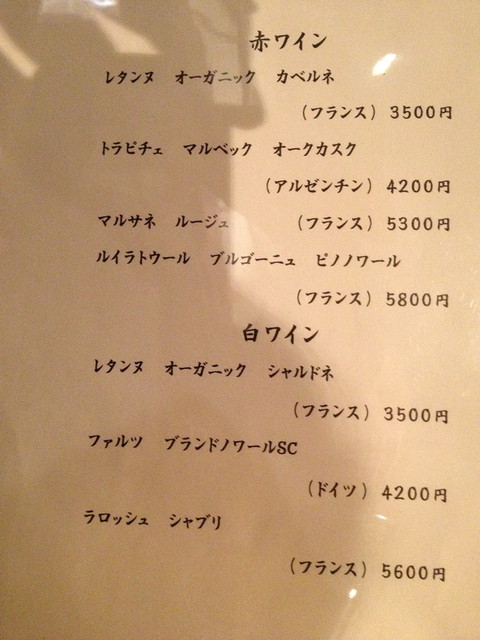 赤ワイン
レタンヌ オーガニック カベルネ
（フランス） 3500円
トラピチェ マルベック オークカスク
（アルゼンチン） 4200円
マルサネ ルージュ （フランス） 5300円
ルイラトウール ブルゴーニュ ピノノワール
（フランス） 5800円
白ワイン
レタンヌ オーガニック シャルドネ
（フランス） 3500円
ファルツ ブランドノワールSC
（ドイツ） 4200円
ラロッシュ シャブリ
（フランス） 5600円